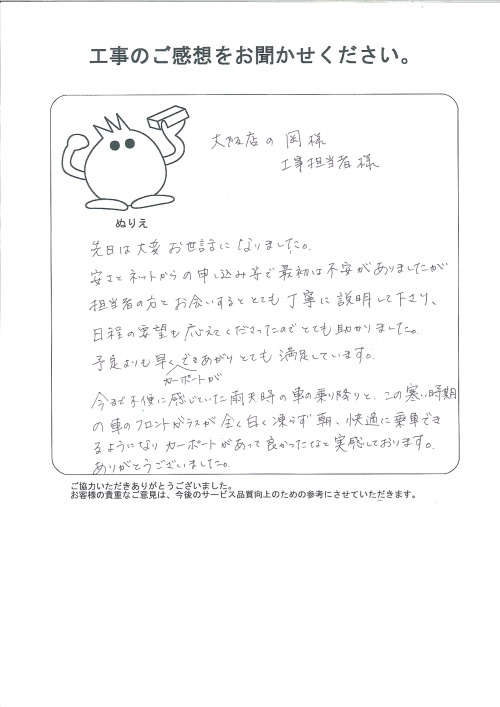 工事のご感想をお聞かせください。
大阪店の 岡 様
工事担当者 様
ぬりえ
先日は大変 お世話に なりました。
安さとネットからの申し込み等で最初は不安がありましたが
担当者の方とお会いするととても丁寧に説明して下さり、
日程の要望も応えてくださったのでとても助かりました。
予定よりも早くできあがりとても満足しています。
カーポートが
今まで不便に感じていた雨天時の車の乗り降りと、この寒い時期
の車のフロントガラスが全く白く凍らず朝、快適に乗車でき
るようになりカーポートがあって良かったなと実感しております。
ありがとうございました。
ご協力いただきありがとうございました。
お客様の貴重なご意見は、今後のサービス品質向上のための参考にさせていただきます。